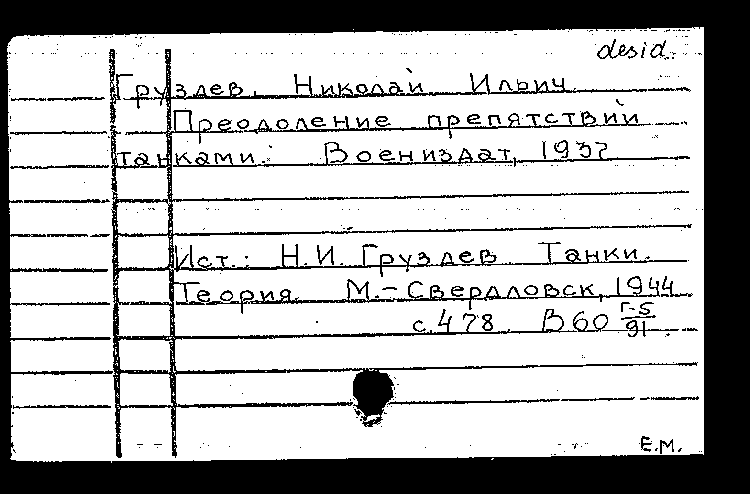 desid.
Груздев, Николай Ильич
Преодоление препятствий
танками. Воениздат, 1937
Ист.: Н.И. Груздев Танки.
Теория М.-Свердловск, 1944
с. 478 В 60 Г-5/91
Е.М.